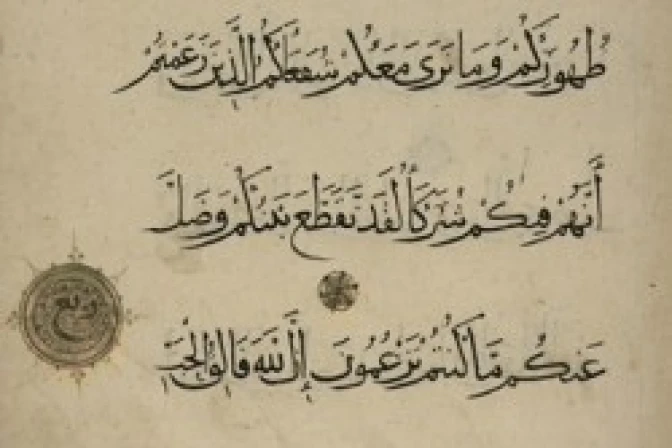 ظُهُورِكُمْ وَمَا نَرَى مَعَكُمْ شُفَعَاءَكُمُ الَّذِينَ زَعَمْتُمْ
أَنَّهُمْ فِيكُمْ شُرَكَاءُ لَقَدْ تَقَطَّعَ بَيْنَكُمْ وَضَلَّ
عَنْكُمْ مَا كُنْتُمْ تَزْعُمُونَ إِنَّ اللَّهَ فَالِقُ الْحَبِّ